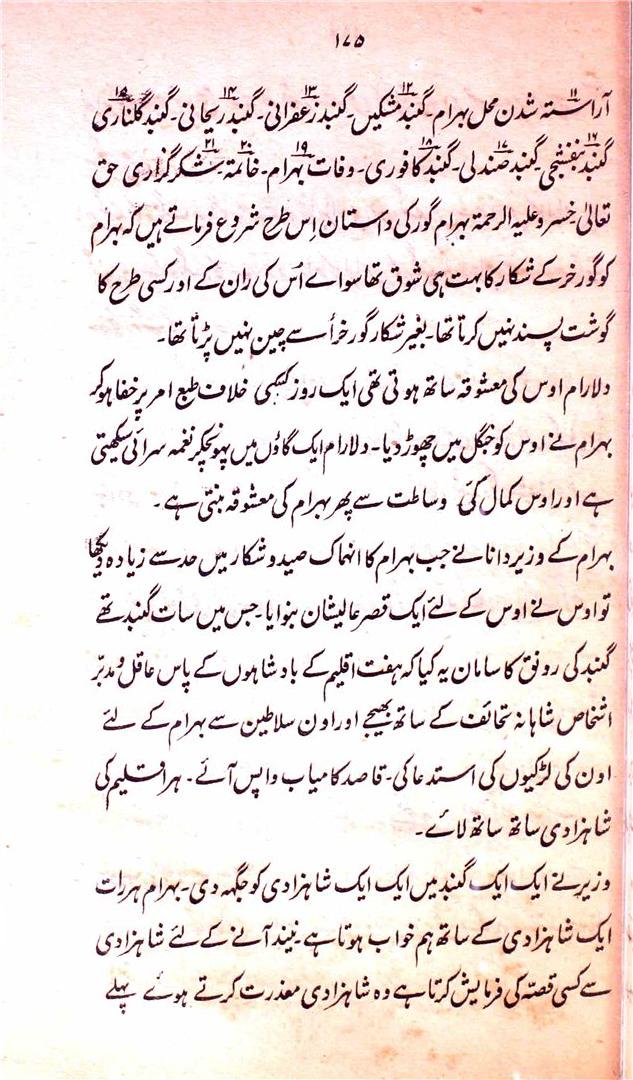 ۱۷۵
۱۱ آراستہ شدن محل بہرام۔ ۱۲ گنبد مشکیں۔ ۱۳ گنبد زعفرانی۔ ۱۴ گنبد ریحانی۔ ۱۵ گنبد گلناری
۱۶ گنبد بنفشجی ۱۷ گنبد صندلی۔ ۱۸ گنبد کافوری۔ ۱۹ وفات بہرام۔ ۲۰ خاتمہ ۲۱ شکرگزاری حق
تعالیٰ خسرو علیہ الرحمۃ بہرام گور کی داستان اِس طرح شروع فرماتے ہیں کہ بہرام
کو گورخر کے شکار کا بہت ہی شوق تھا سواے اُس کی ران کے اور کسی طرح کا
گوشت پسند نہیں کرتا تھا۔ بغیر شکار گورخر اُسے چین نہیں پڑتا تھا۔
دلارام اوس کی معشوقہ ساتھ ہوتی تھی ایک روز کسی خلاف طبع امر پر خفا ہوکر
بہرام نے اوس کو جنگل میں چھوڑ دیا۔ دلارام ایک گاؤں میں پہونچکر نغمہ سرائی سیکھتی
ہے اور اوس کمال کی وساطت سے پھر بہرام کی معشوقہ بنتی ہے۔
بہرام کے وزیر دانا نے جب بہرام کا انہماک صید و شکار میں حد سے زیادہ دیکھا
تو اوس نے اوس کے لئے ایک قصر عالیشان بنوایا۔ جس میں سات گنبد تھے
گنبد کی رونق کا سامان یہ کیا کہ ہفت اقلیم کے بادشاہوں کے پاس عاقل و مدبّر
اشخاص شاہانہ تحائف کے ساتھ بھیجے اور اون سلاطین سے بہرام کے لئے
اون کی لڑکیوں کی استدعا کی۔ قاصد کامیاب واپس آئے۔ ہر اقلیم کی
شاہزادی ساتھ ساتھ لائے۔
وزیر نے ایک ایک گنبد میں ایک ایک شاہزادی کو جگہہ دی۔ بہرام ہر رات
ایک شاہزادی کے ساتھ ہم خواب ہوتا ہے۔ نیند آنے کے لئے شاہزادی
سے کسی قصّہ کی فرمایش کرتا ہے وہ شاہزادی معذرت کرتے ہوئے پہلے